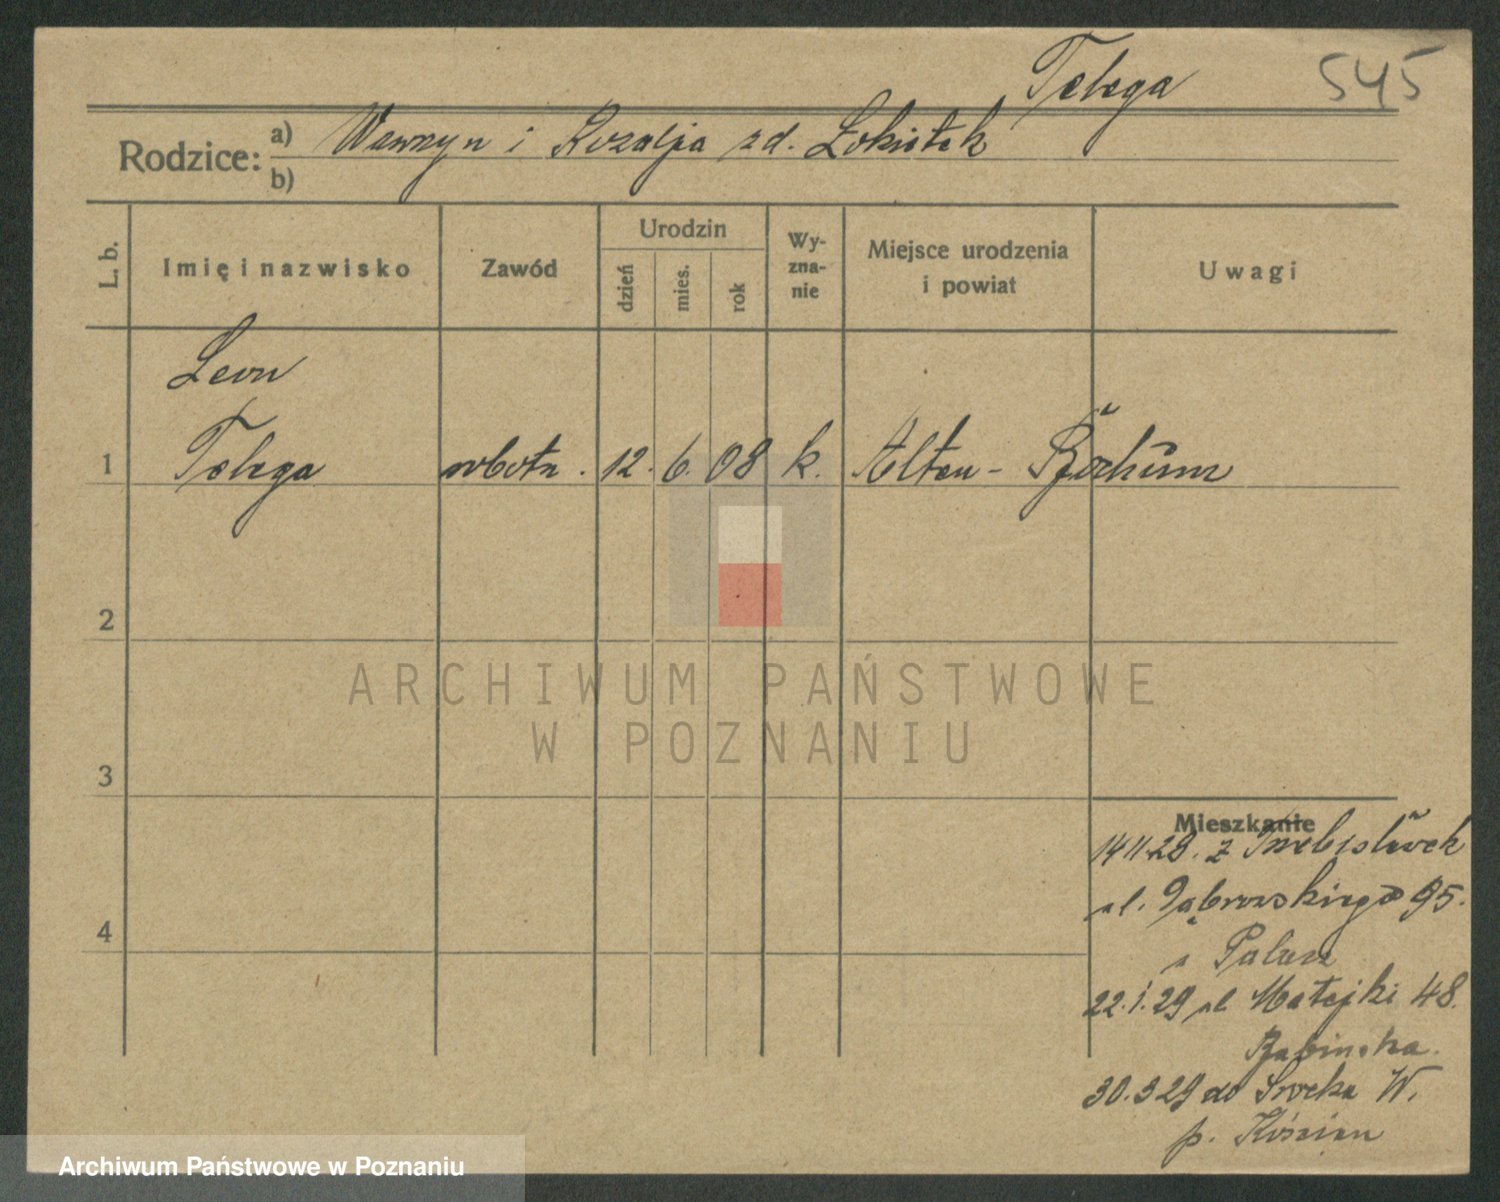 Telega
545
Rodzice: a) Wawrzyn i Rozalja zd. Łokietek
b)
L. b.
Imię i nazwisko
Zawód
Urodzin
dzień
mies.
rok
Wy-
zna-
nie
Miejsce urodzenia
i powiat
Uwagi
Leon
1 Telega robotn. 12. 6. 08 k. Alten-Bochum
2
3
4
Mieszkanie
14 11 28. z
ul. Dąbrowskiego 95.
u Palacz
22.1.29 ul Matejki 48.
Babinska.
30.3 29 do Srocka W.
p. Kościan
ARCHIWUM PAŃSTWOWE
W POZNANIU
Archiwum Państwowe w Poznaniu